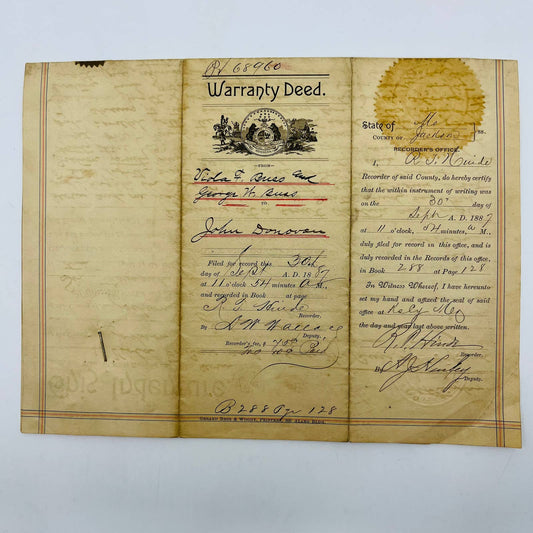 68960
Warranty Deed.
FROM
Viola F. Buss and
George W. Buss
TO
John Donovan
Filed for record this 30th
day of Sept A. D. 1887
at 11 o'clock, 54 minutes A M.,
and recorded in Book at page
Recorder.
By D W Wallace
Deputy.
Recorder's fee, $
Paid
B 288 Pge 128
State of Mo
COUNTY OF Jackson SS.
RECORDER'S OFFICE.
I,
Recorder of said County, do hereby certify
that the within instrument of writing was
on the 30th day of
Sept A. D. 1887
at 11 o'clock, 54 minutes A M.,
duly filed for record in this office, and is
duly recorded in the Records of this office,
in Book 288 at Page 128
In Witness Whereof, I have hereunto
set my hand and affixed the seal of said
office at
the day and year last above written.
Recorder.
By
Deputy.